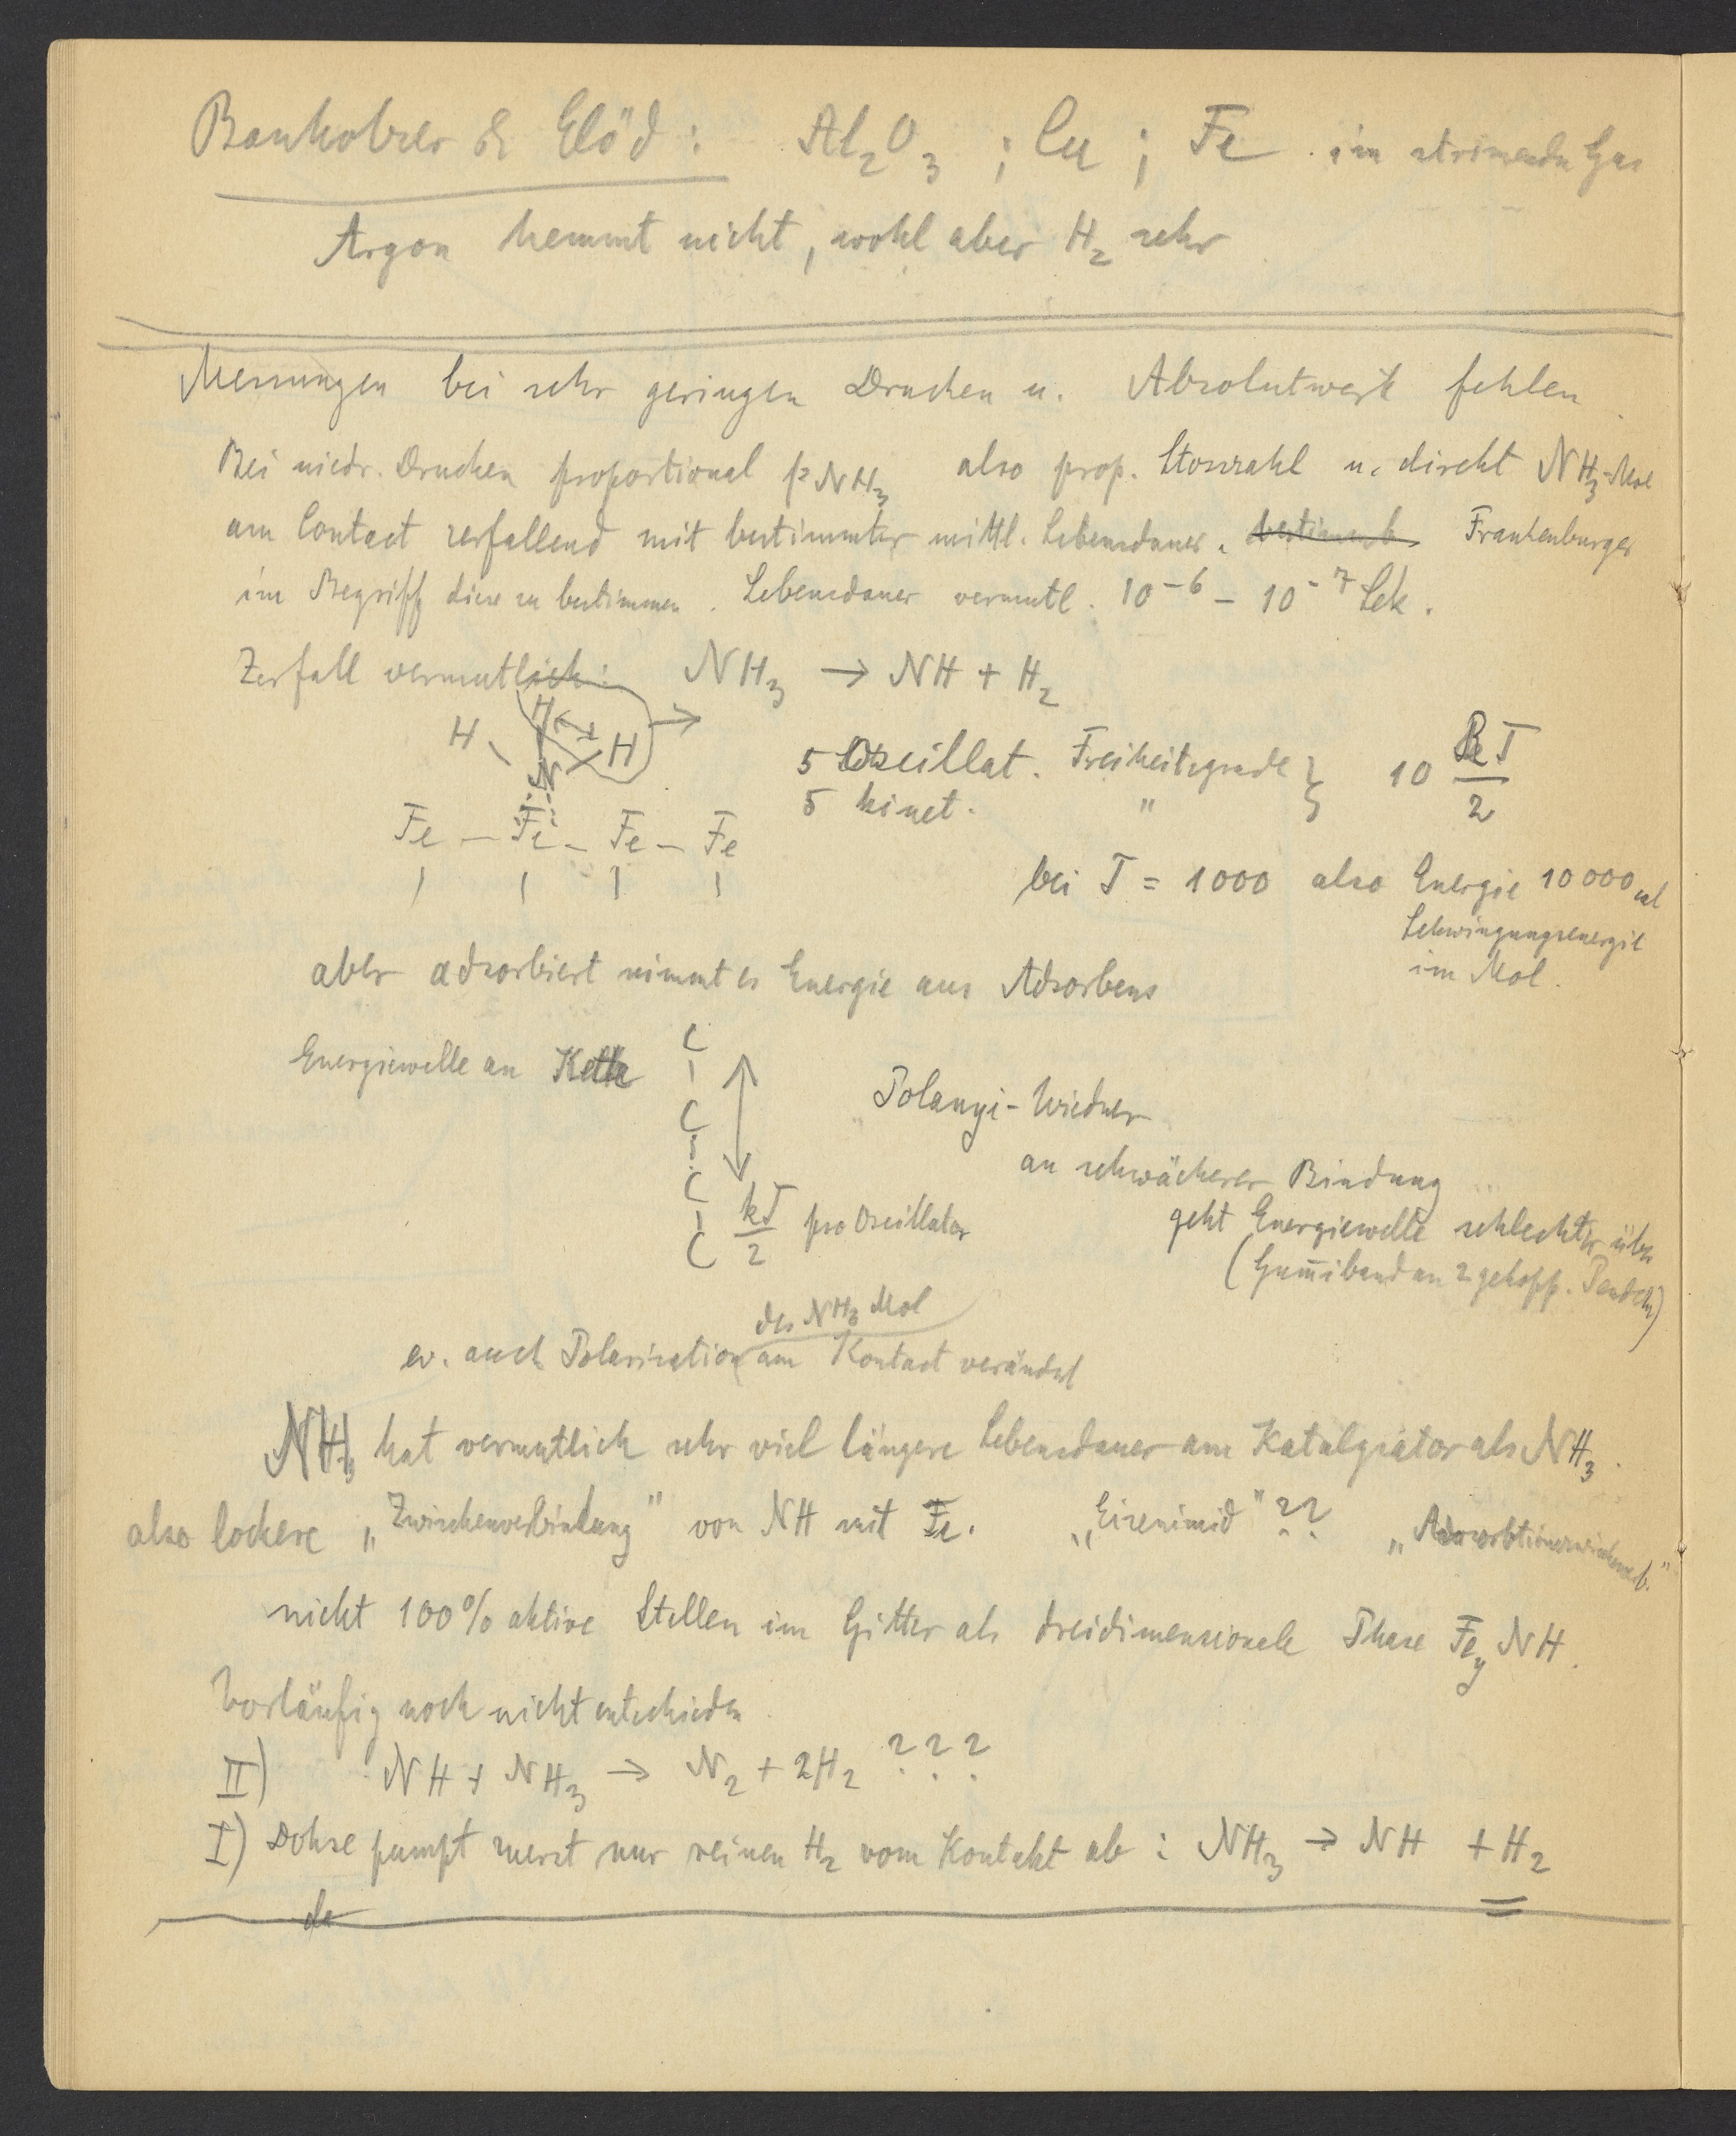 Bankolzer & Elöd : Al₂O₃ ; Cu ; Fe im strömenden Gas
Argon hemmt nicht, wohl aber H₂ sehr
Messungen bei sehr geringen Drucken u. Absolutwerte fehlen
Bei niedr. Drucken proportional p NH₃ also prop. Stosszahl u. direkt NH₃-Mol
am Contact zerfallend mit bestimmter mittl. Lebensdauer. Frankenburger
im Begriff diese zu bestimmen. Lebensdauer vermutl. 10⁻⁶ – 10⁻⁷ Sek.
Zerfall vermutlich : NH₃ → NH + H₂
H H H →
N
Fe – Fe – Fe – Fe
5 Oscillat. Freiheitsgrade } 10 RT/2
5 kinet. "
bei T = 1000 also Energie 10000 cal
Schwingungsenergie
im Mol.
aber adsorbiert nimmt es Energie aus Adsorbens
Energiewelle an Kette
C
C
C
C
kT/2 pro Oscillator
Polanyi-Wiedner
an schwächerer Bindung
geht Energiewelle schlechter über
(Gum̄iband an 2 gekopp. Pendeln)
des NH₃ Mol
ev. auch Polarisation am Kontact verändert
NH hat vermutlich sehr viel längere Lebensdauer am Katalysator als NH₃.
also lockere „Zwischenverbindung" von NH mit Fe. „Eisenimid" ?? „Adsorbtionszwischenverb."
nicht 100% aktive Stellen im Gitter als dreidimensionale Phase Feᵧ NH.
Vorläufig noch nicht entschieden
II) NH + NH₃ → N₂ + 2H₂ ???
I) Dohse pumpt zuerst nur reinen H₂ vom Kontakt ab : NH₃ → NH + H₂